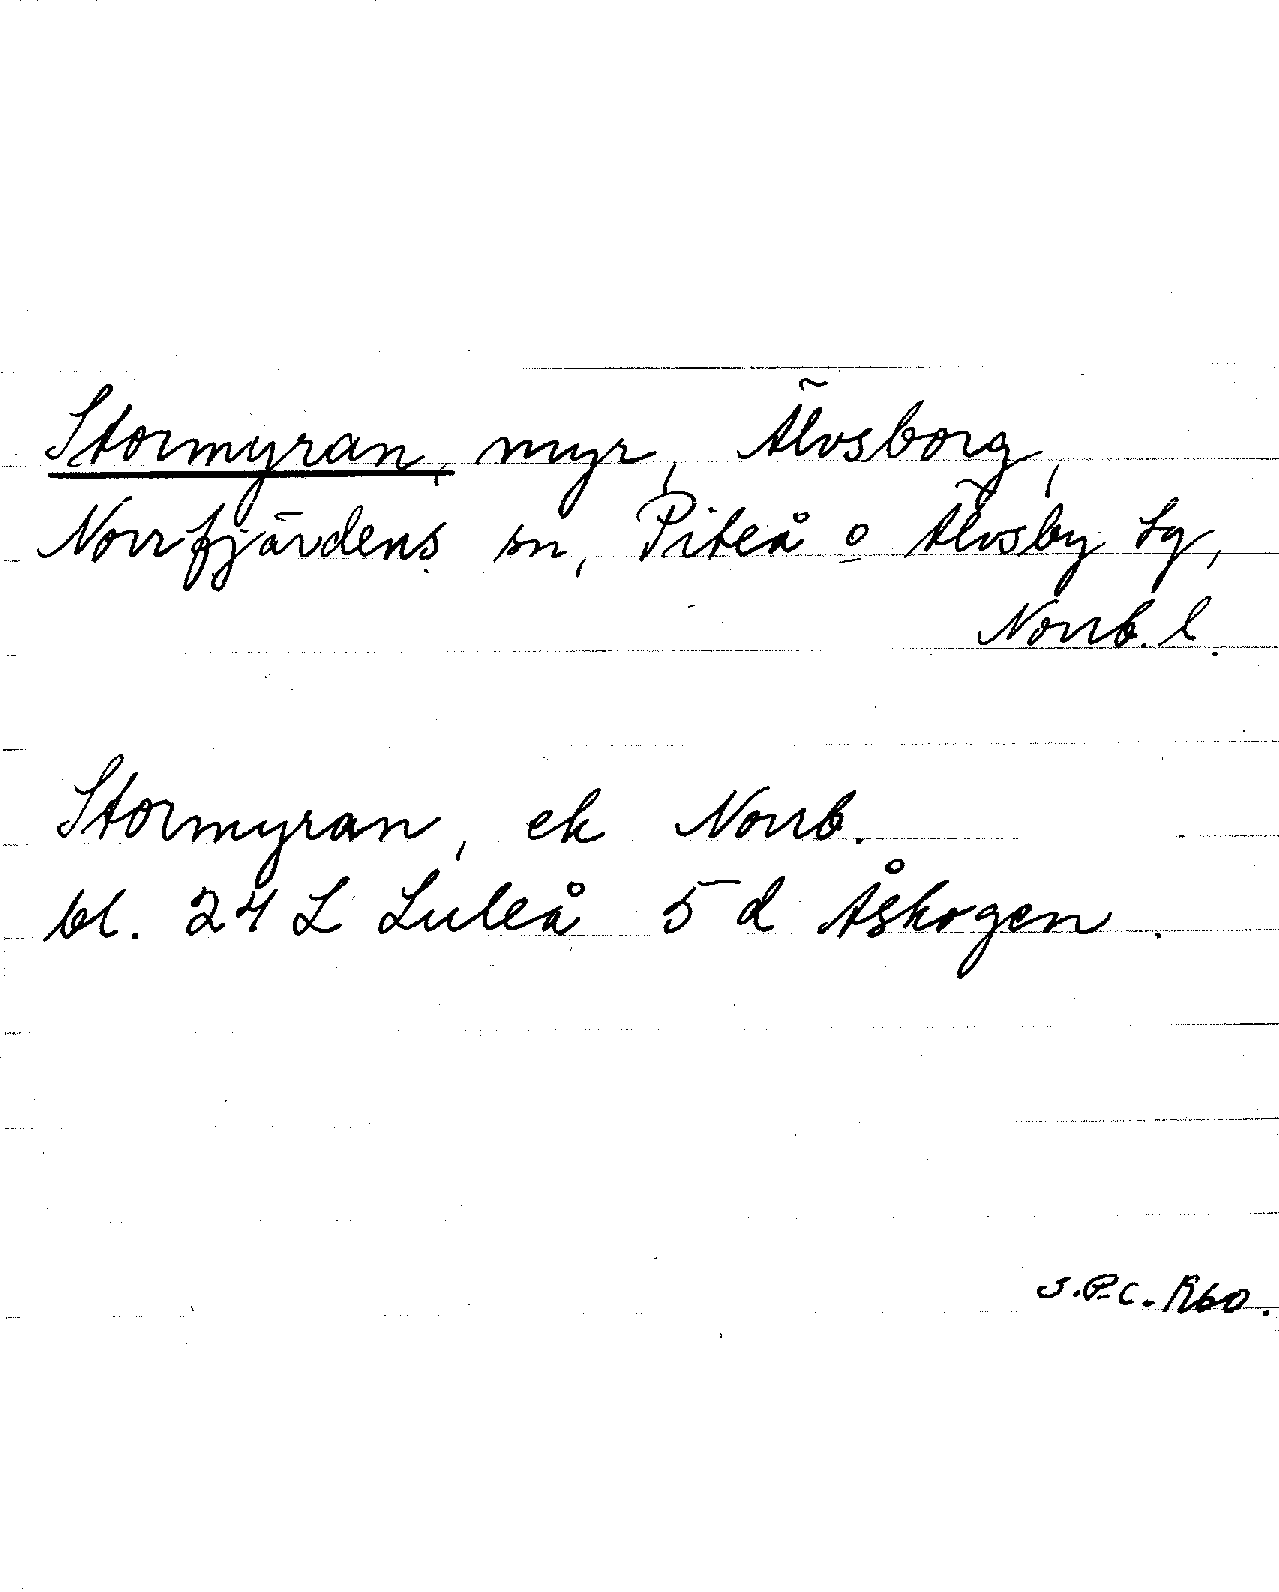 Stormyran, myr, Älvsborg,
Norrfjärdens sn, Piteå o Älvsby tg,
Norrb. l.
Stormyran, ek Norrb.
bl. 24 L Luleå 5 d Åskogen.
J.P.C. R60.